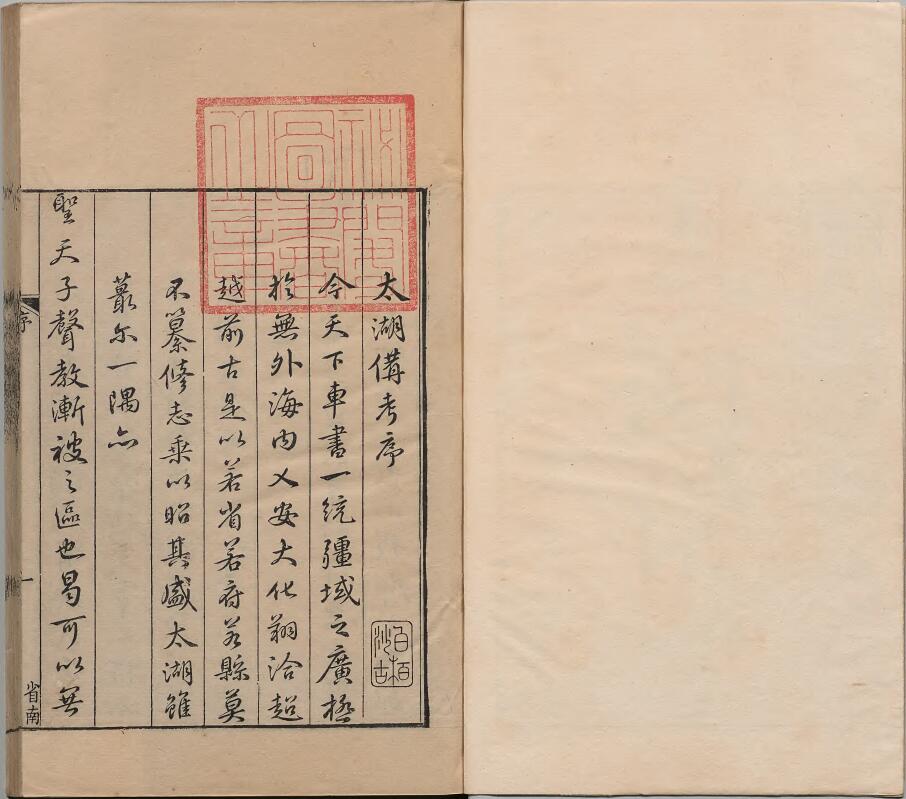 太湖備考序
今天下車書一統疆域之廣極
於無外海内乂安大化翔洽超
越前古是以若省若府若縣莫
不纂修志乘以昭其盛太湖雖
蕞尔一隅亦
聖天子聲教漸被之區也曷可以無
序
一
省南